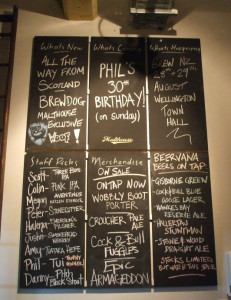 Whats New
ALL THE
WAY FROM
SCOTLAND
BREWDOG
MALTHOUSE
EXCLUSIVE
WOOT!
Whats Coming
PHIL'S
30th
BIRTHDAY!
(on Sunday)
Malthouse
Whats Happening
BREW NZ
28th - 29th
AUGUST
WELLINGTON
TOWN
HALL
Staff Picks
Scott
Colin - PINK IPA
Megan
Peter -
Hadyn
Justin
Amy
Phil - TUI
Danny -
Black Stout
Merchandise
ON SALE
ON TAP NOW
WOBBLY BOOT
PORTER
CROUCHER PALE
ALE
Cock & Bull
FUGGLES
Epic
ARMAGEDDON
BEERVANA
BEERS ON TAP
GISBORNE GREEN
COCK & BULL BLUE
GOOSE LAGER
HAWKES BAY
RESERVE ALE
HALLERTAU
STUNTMAN
STONEWOOD
DRAUGHT ALE
STOCKS LIMITED